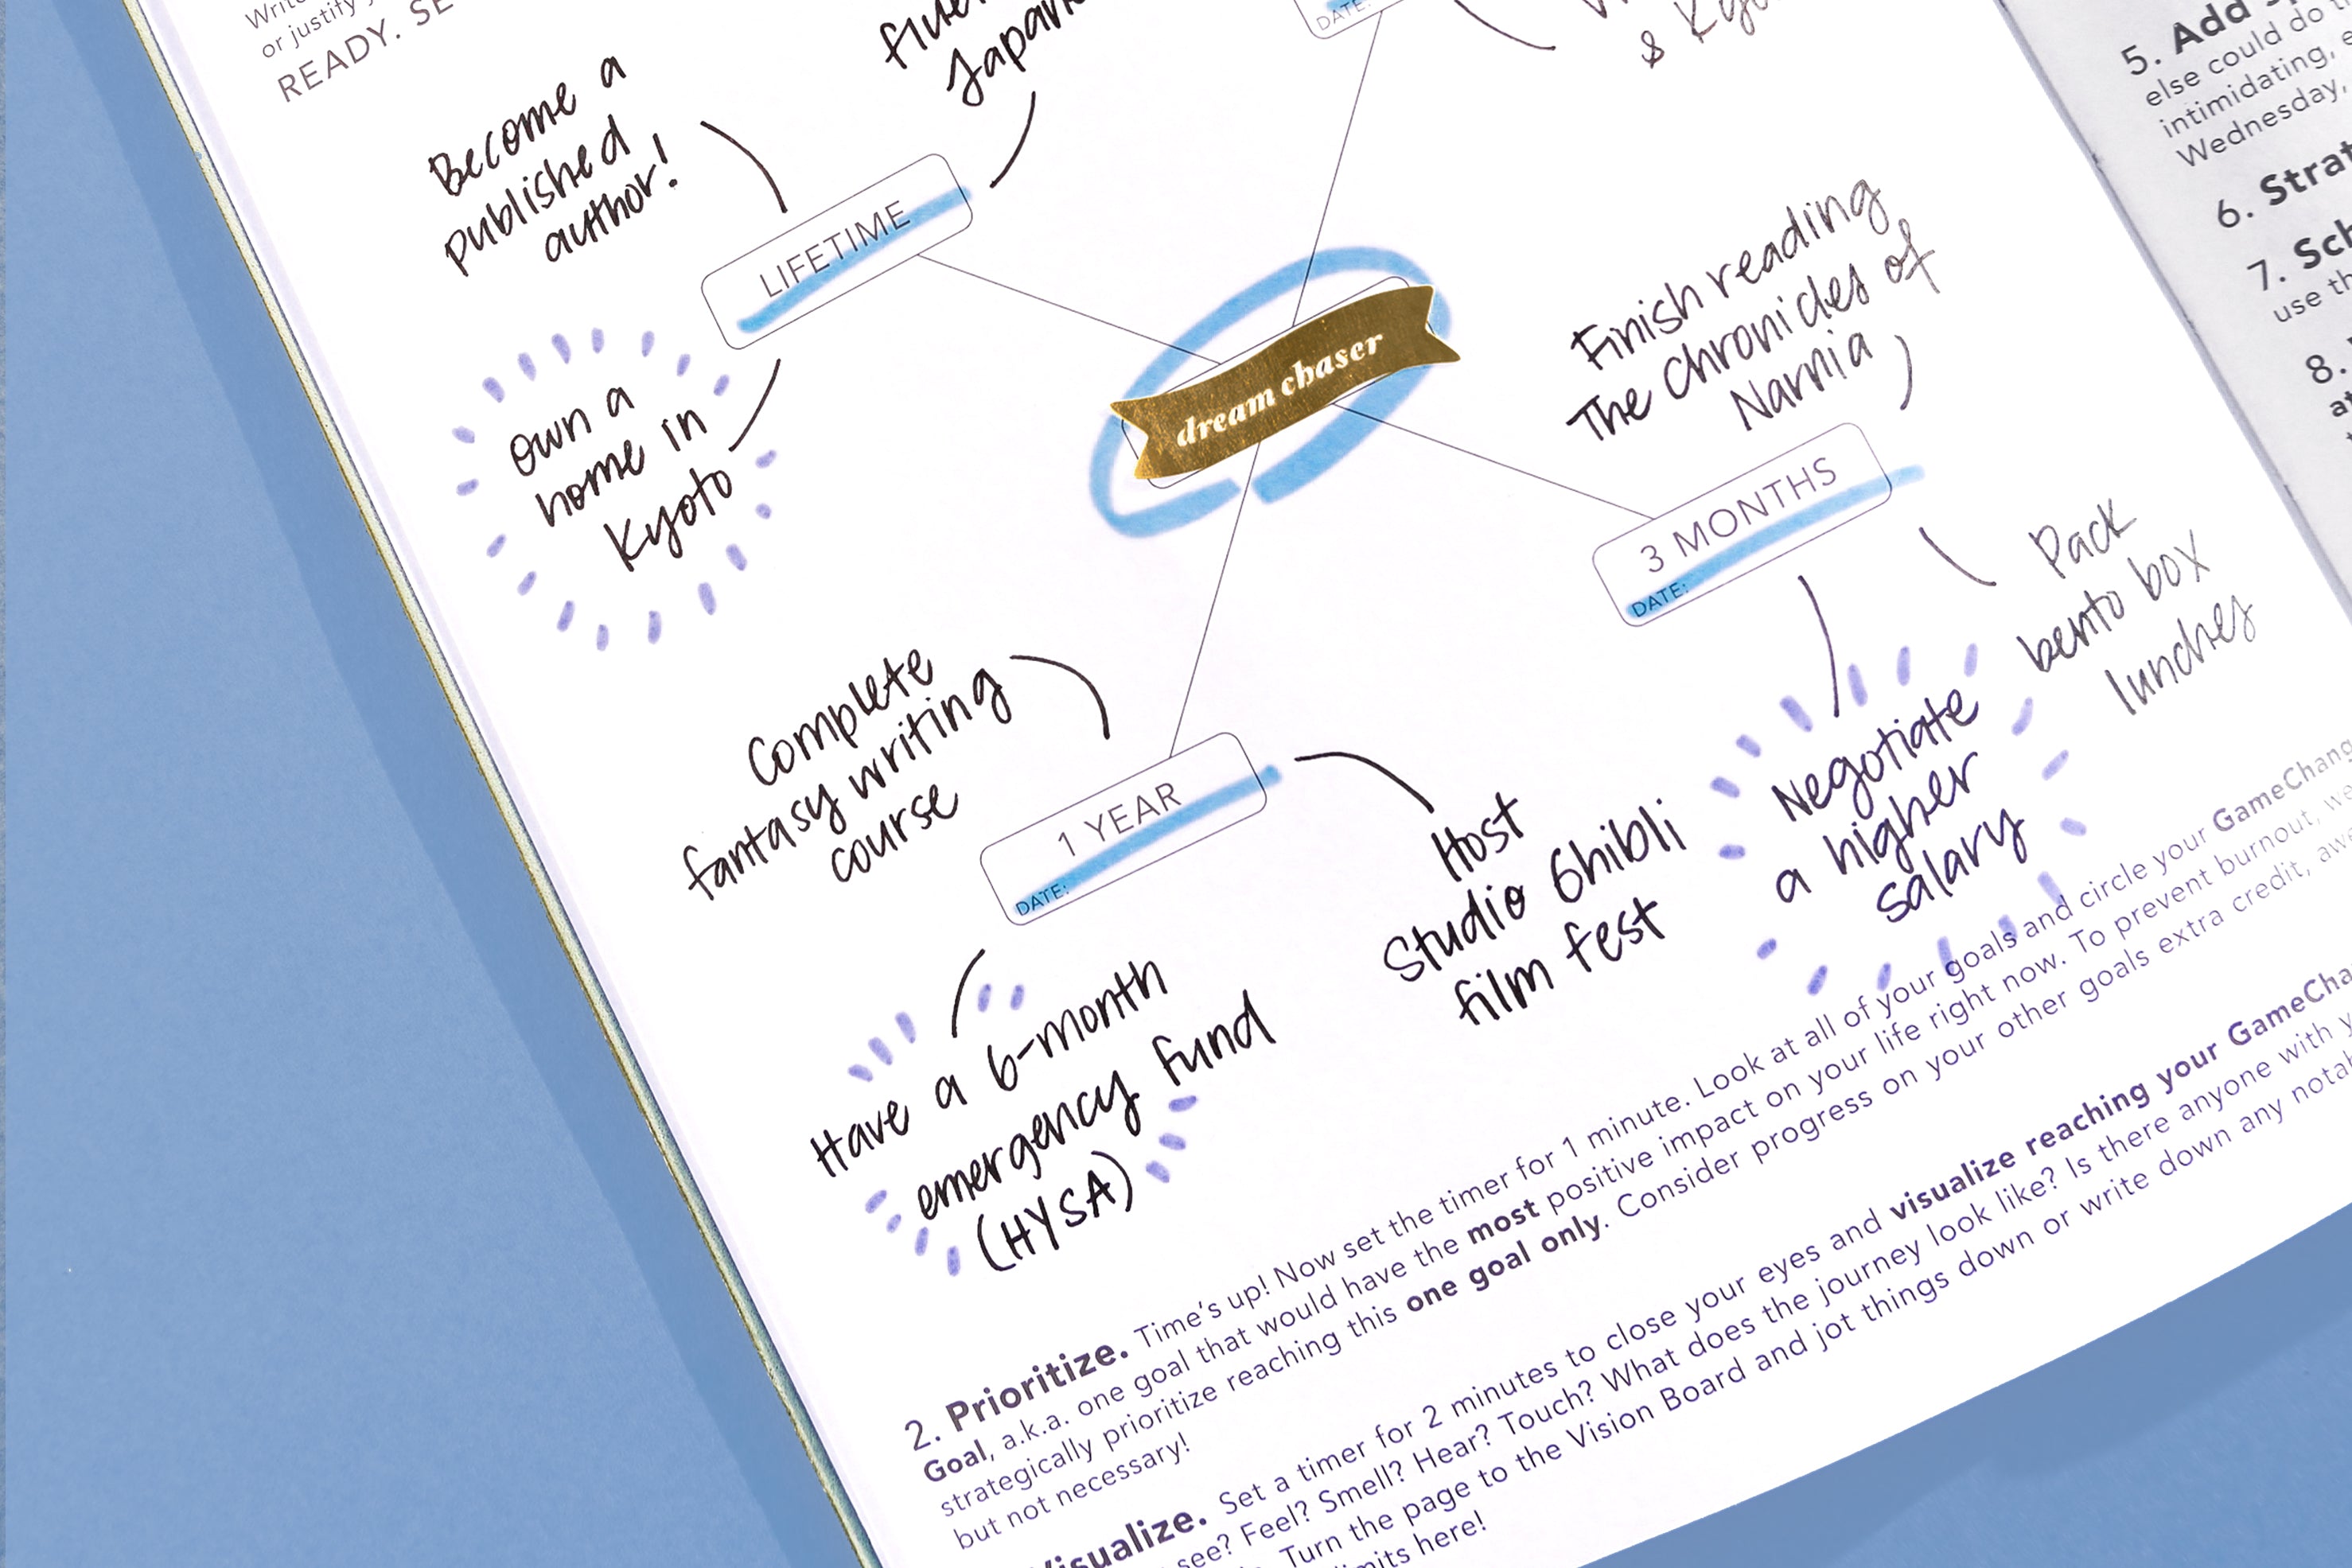 or justify
READY.
Become a
published
author!
LIFETIME
own a
home in
Kyoto
DATE:
&
dream chaser
Finish reading
The Chronicles of
Narnia
3 MONTHS
DATE:
Pack
bento box
lunches
Negotiate
a higher
salary
Complete
fantasy writing
course
1 YEAR
DATE:
Host
Studio Ghibli
film fest
Have a 6-month
emergency fund
(HYSA)
2. Prioritize. Time's up! Now set the timer for 1 minute. Look at all of your goals and circle your
Goal, a.k.a. one goal that would have the most positive impact on your life right now. To prevent burnout,
strategically prioritize reaching this one goal only. Consider progress on your other goals extra credit,
but not necessary!
Set a timer for 2 minutes to close your eyes and visualize reaching your
see? Feel? Smell? Hear? Touch? What does the journey look like? Is there anyone with
Turn the page to the Vision Board and jot things down or write down any
here!
5. Add
else could do
intimidating,
Wednesday,
6.
7.
use
8.